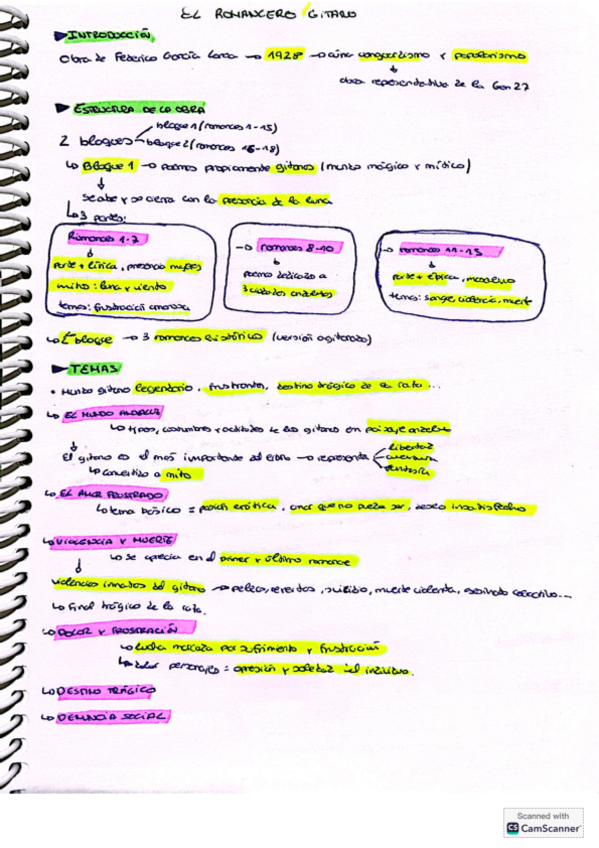 EL ROMANCERO GITANO
INTRODUCCIÓN
Obra de Federico García Lorca → 1928 → aúna vanguardismo y popularismo
obra representativa de la Gen 27
ESTRUCTURA DE LA OBRA
bloque 1 (romances 1-15)
2 bloques
bloque 2 (romances 16-18)
↳ Bloque 1 → poemas propiamente gitanos (mundo mágico y mítico)
se abre y se cierra con la presencia de la luna
↳ 3 partes:
Romances 1-7
parte + lírica, presencia mujeres
mito: luna y viento
tema: frustración amorosa
→ romances 8-10
poemas dedicados a
3 ciudades andaluzas
→ romances 11-15
parte + épica, masculino
temas: sangre, violencia, muerte
↳ 2º bloque → 3 romances históricos (versión agitanada)
TEMAS
• Mundo gitano legendario, frustración, destino trágico de la raza...
↳ EL MUNDO ANDALUZ
↳ tipos, costumbres y actitudes de los gitanos en paisaje andaluz
El gitano es el más importante del libro → representa
libertad
↳ convertido a mito
↳ EL AMOR FRUSTRADO
↳ tema básico = pasión erótica, amor que no puede ser, deseo insatisfecho
↳ VIOLENCIA Y MUERTE
↳ se aprecia en el primer y último romance
violencias innatas del gitano → peleas, reyertas, suicidio, muerte violenta, asesinato colectivo...
↳ Final trágico de la raza.
↳ DOLOR Y FRUSTRACIÓN
↳ Lucha marcada por sufrimiento y frustración
↳ dolor personajes = opresión y soledad del individuo.
↳ DESTINO TRÁGICO
↳ DENUNCIA SOCIAL
Scanned with
CS CamScanner